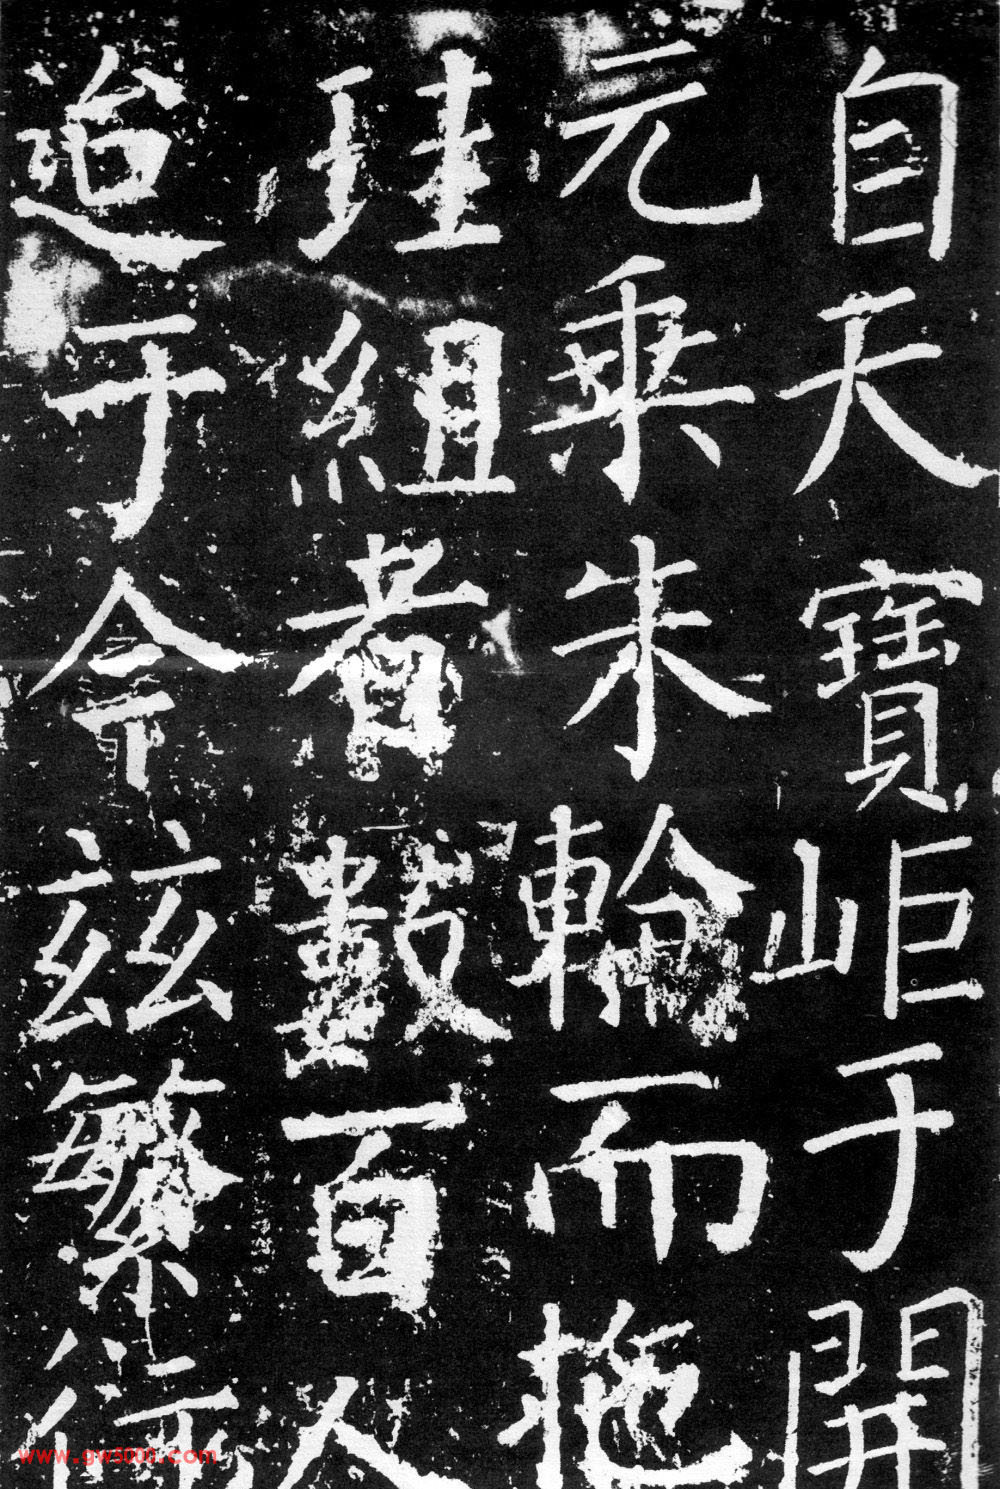 自天寶岠于開
元乗朱輪而拖
珪組者數百人
迨于今茲繁衍
www.gw5000.com